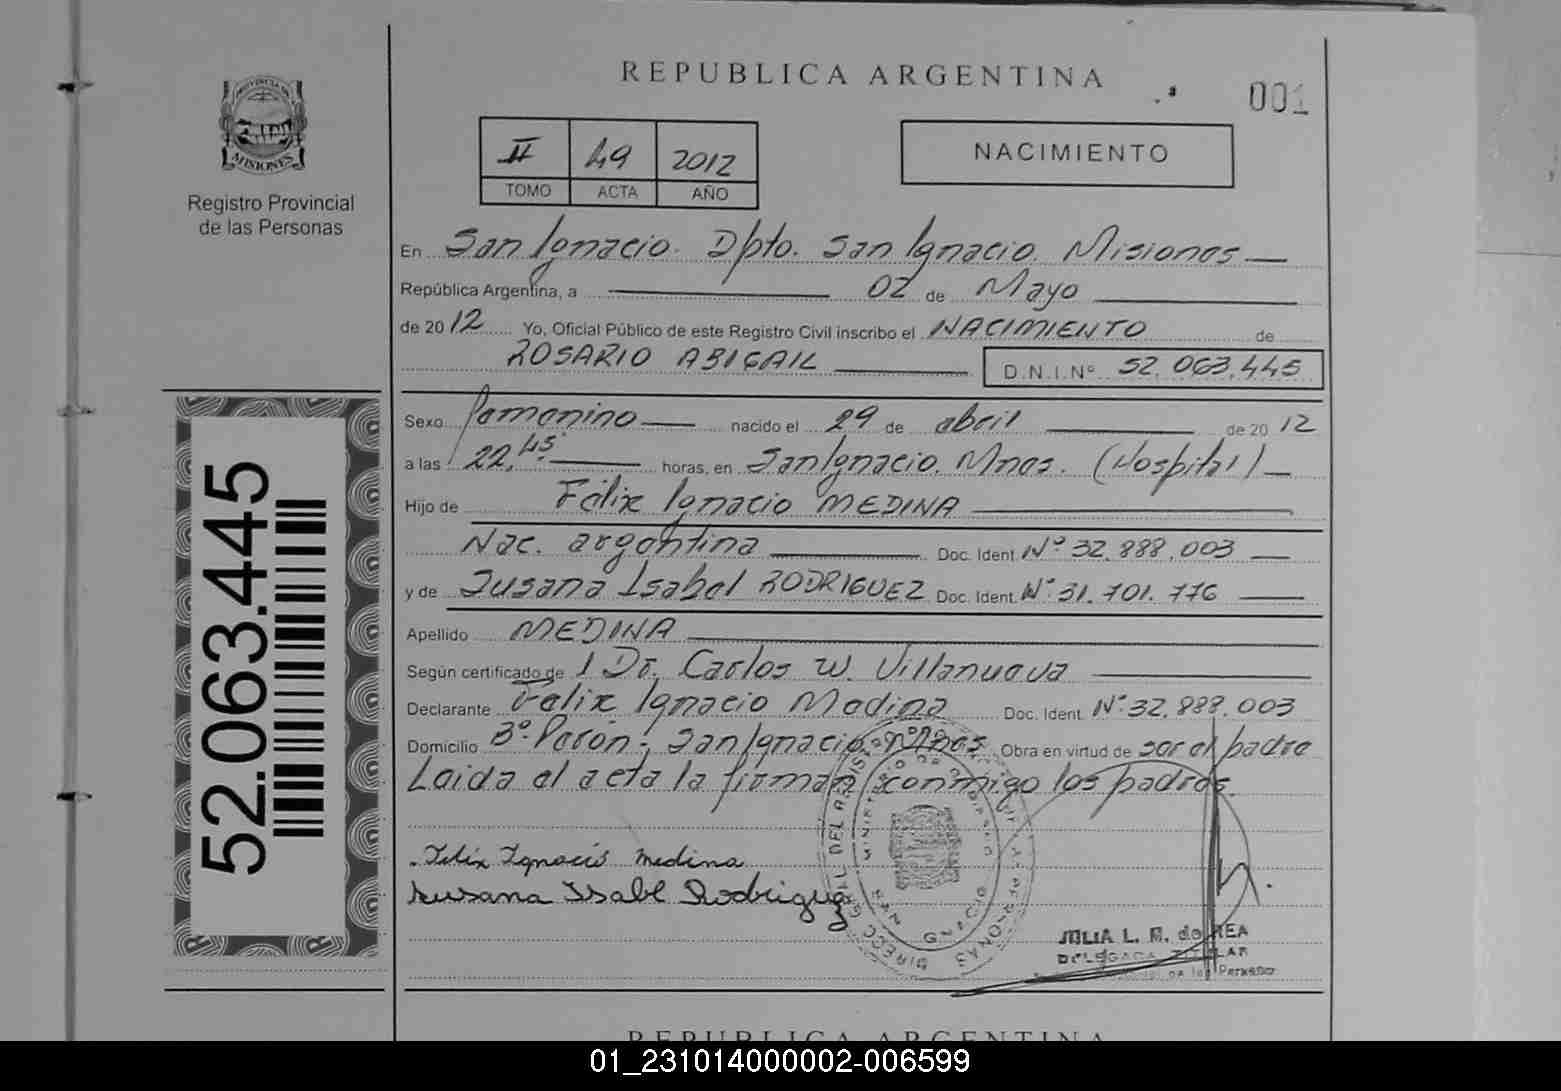 REPUBLICA ARGENTINA
001
PROVINCIA DE
MISIONES
Registro Provincial
de las Personas
II 49 2012
TOMO ACTA AÑO
NACIMIENTO
En San Ignacio. Dpto. San Ignacio. Misiones
República Argentina, a 02 de Mayo
de 2012 Yo, Oficial Público de este Registro Civil inscribo el NACIMIENTO de
ROSARIO ABIGAIL D.N.I.Nº 52.063.445
Sexo femenino nacido el 29 de abril de 2012
a las 22,45 horas, en San Ignacio. Mnes. (Hospital)
Hijo de Félix Ignacio MEDINA
Nac. argentina Doc. Ident. Nº 32.888.003
y de Susana Isabel RODRIGUEZ Doc. Ident. Nº 31.701.776
Apellido MEDINA
Según certificado de l Dr. Carlos W. Villanueva
Declarante Felix Ignacio Medina Doc. Ident. Nº 32.888.003
Domicilio Bº Perón - San Ignacio. Mnes Obra en virtud de ser el padre
Leida el acta la firman conmigo los padres.
Felix Ignacio Medina
Susana Isabel Rodriguez
JULIA L. R. de REA
DELEGADA TITULAR
de las Personas
52.063.445
REPUBLICA ARGENTINA
01_231014000002-006599